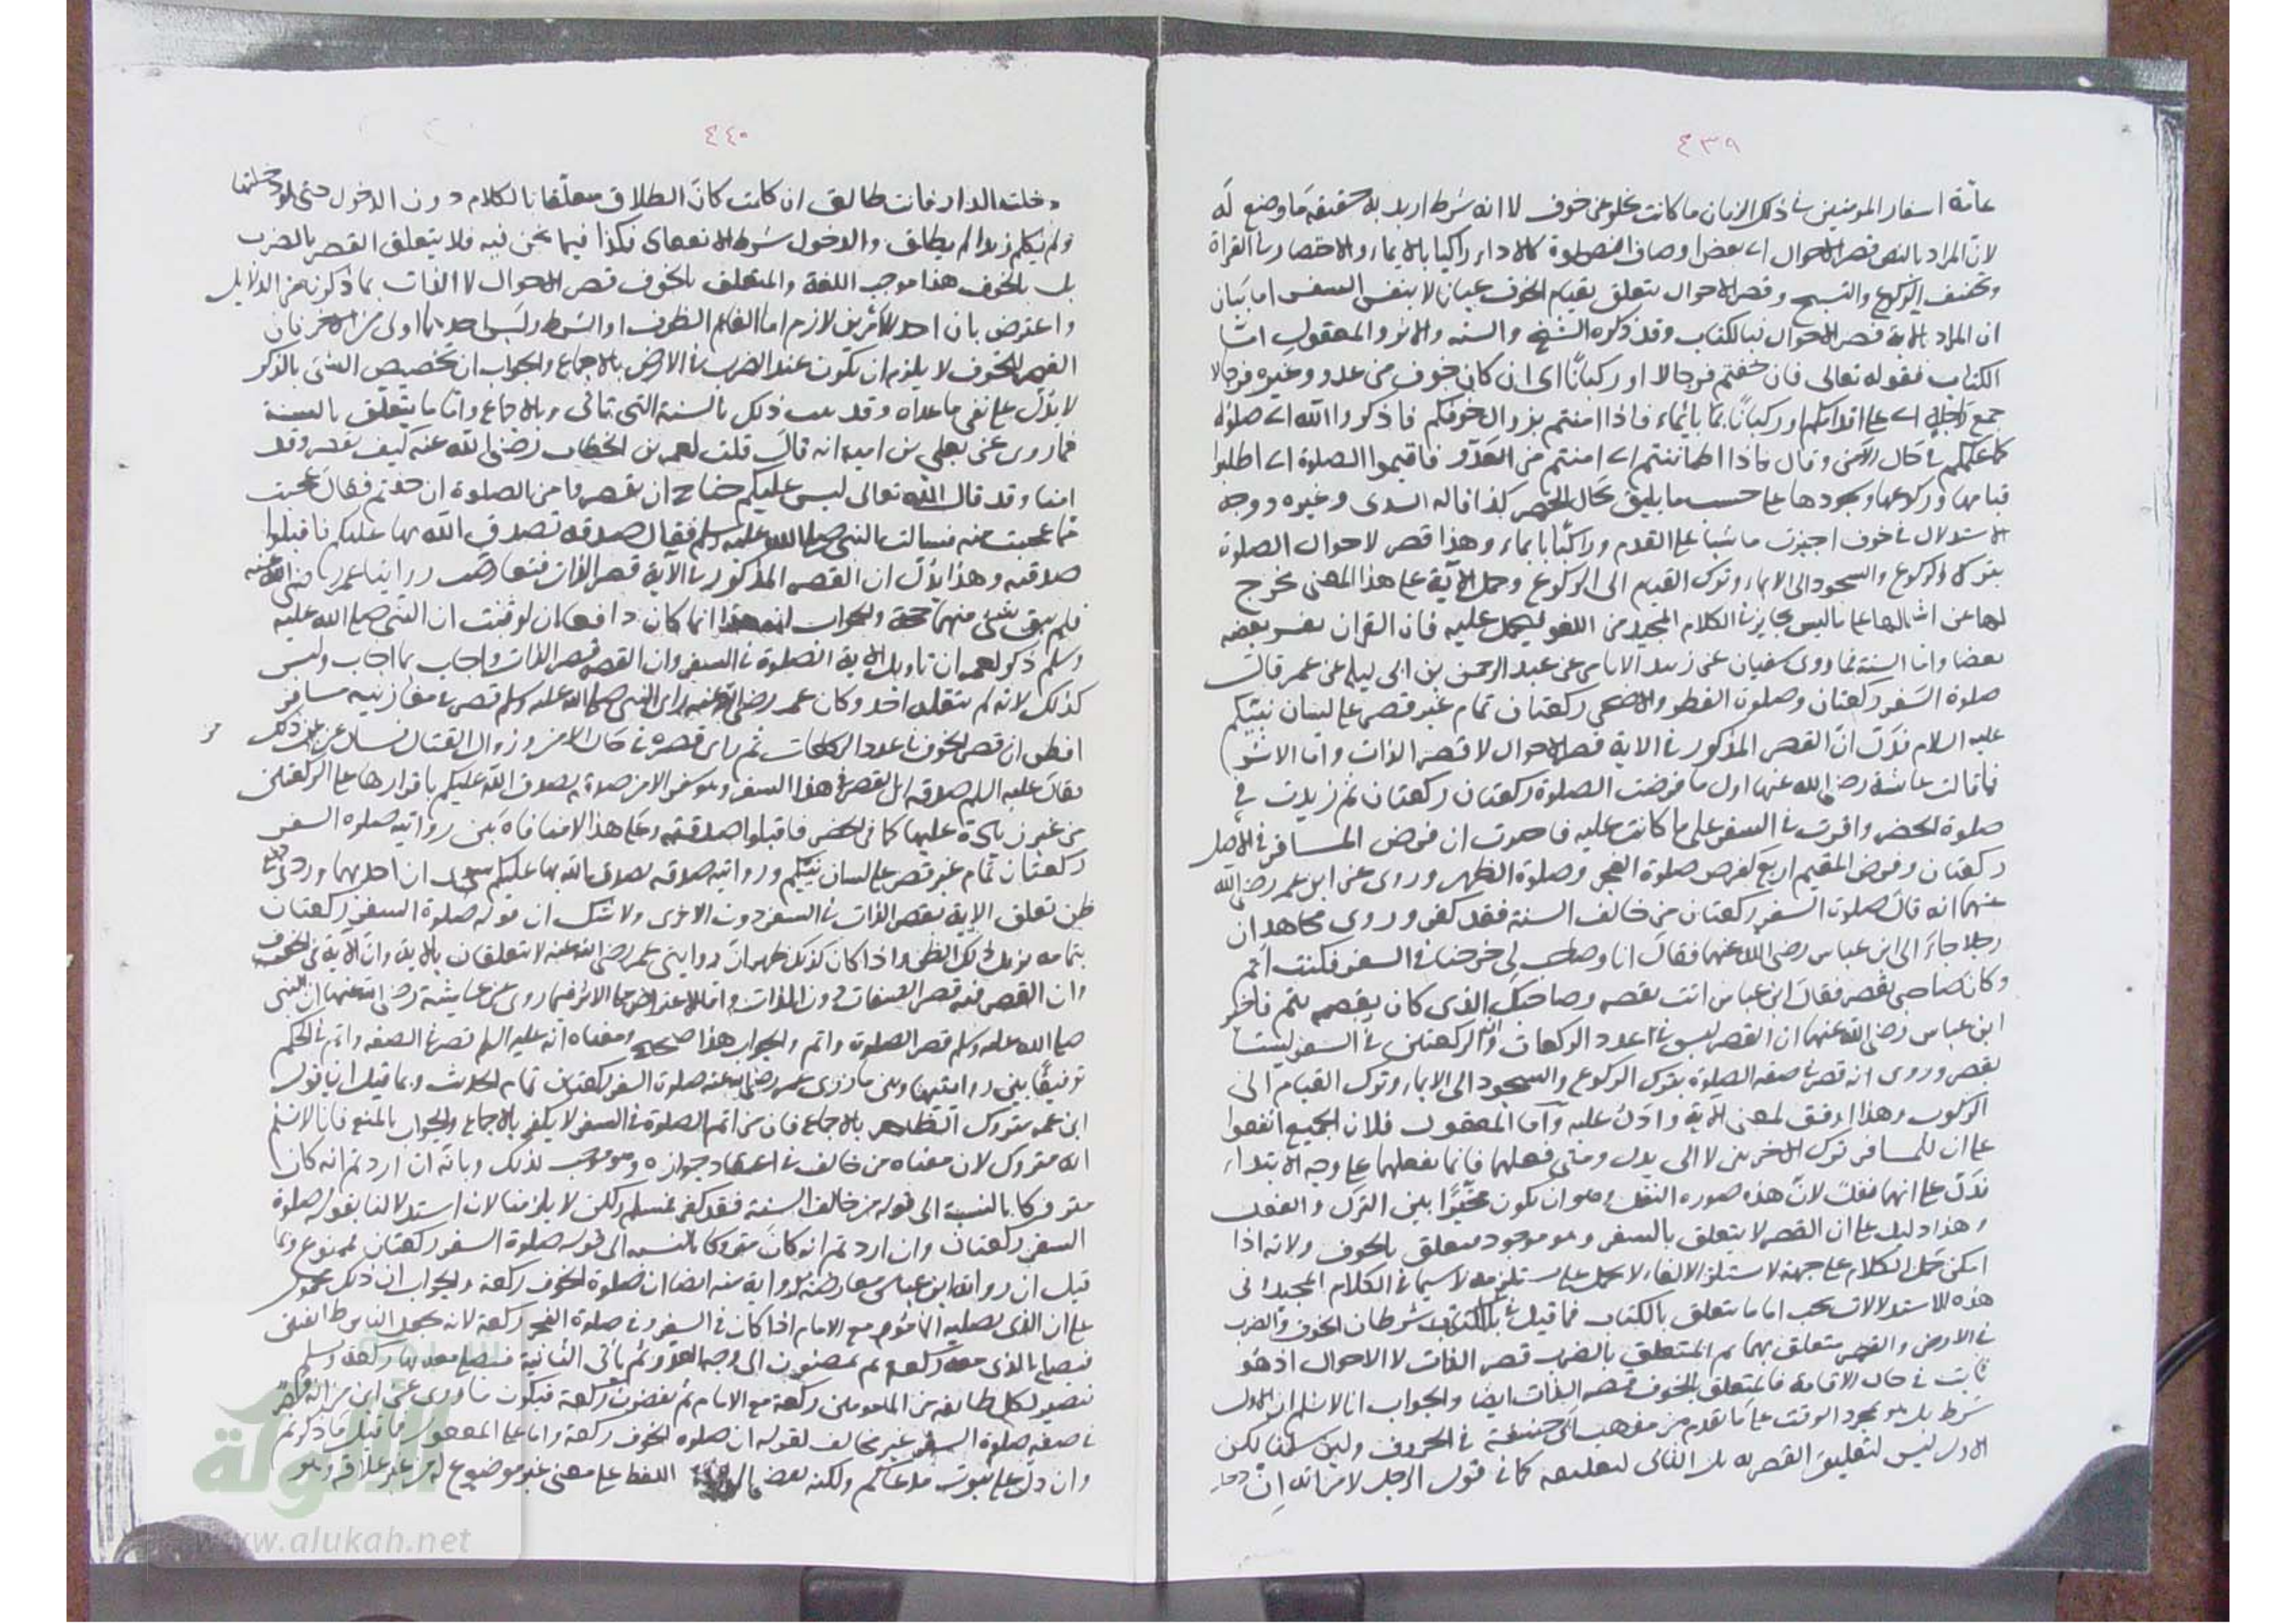 ٤٣٩
عامة اسفار المومنين فى ذلك الزمان ما كانت تخلو عن خوف لا انه شرط اريد به حقيقة ما وضع له
لان المراد بالنص قصر الاحوال اى بعض اوصاف الصلوة كالاداء راكبا بالايماء والاختصار فى القراة
وتخفيف الركوع والتسبيح وقصر الاحوال يتعلق بقيام الخوف عيانا لا بنفس السفر اما بيان
ان المراد بالاية قصر الاحوال فبالكتاب وقد ذكره الشيخ والسنة والاثر والمعقول اما
الكتاب فقوله تعالى فان خفتم فرجالا او ركبانا اى ان كان خوف من عدو وغيره فرجالا
جمع راجل اى على اقدامكم او ركبانا بايماء فاذا امنتم بزوال خوفكم فاذكروا الله اى صلوة
كما علمكم فى حال الامن وقال فاذا اطماننتم اى امنتم من العدو فاقيموا الصلوة اى اطلبوا
قيامها وركوعها وسجودها على حسب ما يليق بحال الحضر كذا قاله السدى وغيره ووجه
الاستدلال فى خوف اجيزت ماشيا على القدم وراكبا بايماء وهذا قصر لاحوال الصلوة
بترك الركوع والسجود الى الايماء وترك القيام الى الركوع وحمل الاية على هذا المعنى مخرج
لها عن اشالها على ما ليس بجايز فى الكلام المجيد من اللغو فيحمل عليه فان القران يفسر بعضه
بعضا واما السنة فما روى سفيان عن زبيد الايامى عن عبد الرحمن بن ابى ليلى عن عمر قال
صلوة السفر ركعتان وصلوة الفطر والاضحى ركعتان تمام غير قصر على لسان نبيكم
عليه السلام فدل ان القصر المذكور فى الاية قصر الاحوال لا قصر الذات واما الاثر
فما قالت عائشة رضى الله عنها اول ما فرضت الصلوة ركعتان ركعتان ثم زيدت فى
صلوة الحضر واقرت فى السفر على ما كانت عليه فاخبرت ان فرض المسافر فى الاصل
ركعتان وفرض المقيم اربع كفرض صلوة الفجر وصلوة الظهر وروى عن ابن عمر رضى الله
عنهما انه قال صلوة السفر ركعتان من خالف السنة فقد كفر وروى مجاهد ان
رجلا جاء الى ابن عباس رضى الله عنهما فقال انا وصاحب لى خرجنا فى السفر فكنت اتم
وكان صاحبى يقصر فقال ابن عباس انت تقصر وصاحبك الذى كان يقصر يتم فاخبر
ابن عباس رضى الله عنهما ان القصر ليس فى اعداد الركعات وان الركعتين فى السفر ليستا
بقصر وروى انه قصر فى صفة الصلوة بترك الركوع والسجود الى الايماء وترك القيام الى
الركوب وهذا اوفق لمعنى الاية وادل عليه واما المعقول فلان الجميع اتفقوا
على ان للمسافر ترك الاخريين لا الى بدل ومتى فعلهما فانما يفعلهما على وجه الابتداء
فدل على انهما نفل لان هذه صورة النفل وهو ان يكون مخيرا بين الترك والفعل
وهذا دليل على ان القصر لا يتعلق بالسفر وهو موجود متعلق بالخوف ولانه اذا
امكن حمل الكلام على جهة لا ستلزم الالغاء لا يحمل على ما يستلزمه لا سيما فى الكلام المجيد وفى
هذه الاستدلالات بحث اما ما يتعلق بالكتاب فما قيل فى الكتاب شرطان الخوف والضرب
فى الارض والقصر متعلق بهما ثم المتعلق بالضرب قصر الذات لا الاحوال اذ هو
ثابت فى حال الاقامة فالمتعلق بالخوف قصر الذات ايضا والجواب انا لا نسلم ان الاول
شرط بل هو لمجرد الوقت على ما تقدم من مذهب ابى حنيفة فى الحروف ولئن سلمنا لكن
الاول ليس لتعليق القصر به بل الثانى لتعليقه كما فى قول الرجل لامراته ان
٤٤٠
دخلت الدار فانت طالق ان كلمت كان الطلاق معلقا بالكلام دون الدخول حتى لو دخلتها
ولم تكلم زيدا لم يطلق والدخول شرط الانعقاد فكذا فيما نحن فيه فلا يتعلق القصر بالضرب
بل بالخوف هذا موجب اللغة والمتعلق بالخوف قصر الاحوال لا الذات بما ذكرنا من الدلايل
واعترض بان احد الامرين لازم اما الغاء الظرف او الشرط وليس احدهما اولى من الاخر فان
القصر للخوف لا يلزم ان يكون عند الضرب فى الارض بالاجماع والجواب ان تخصيص الشئ بالذكر
لا يدل على نفى ما عداه وقد ثبت ذلك بالسنة التى تاتى وبالاجماع واما ما يتعلق بالسنة
فما روى عن يعلى بن امية انه قال قلت لعمر بن الخطاب رضى الله عنه كيف نقصر وقد
امنا وقد قال الله تعالى ليس عليكم جناح ان تقصروا من الصلوة ان خفتم فقال عجبت
مما عجبت منه فسالت النبى صلى الله عليه وسلم فقال صدقة تصدق الله بها عليكم فاقبلوا
صدقته وهذا يدل ان القصر المذكور فى الاية قصر الذات فتعارضت روايتا عمر رضى الله عنه
فلم يبق شئ منهما حجة والجواب ان هذا انما كان دافعا ان لو ثبت ان النبى صلى الله عليه
وسلم ذكر لعمر ان تاويل الاية الصلوة فى السفر وان القصر قصر الذات واجاب بما اجاب وليس
كذلك لانه لم ينقله احد وكان عمر رضى الله عنه راى النبى صلى الله عليه وسلم قصر فى مغازيه مسافر
افظن ان قصر الخوف فى اعداد الركعات ثم راى قصره فى حال الامن وزوال القتال فسال عن ذلك
فقال عليه السلم صدقة اى القصر فى هذا السفر وهو سفر الامن صدقة تصدق الله عليكم باقرارها على الركعتين
من غير زيادة عليها كما فى الحضر فاقبلوا صدقته وعلى هذا لا منافاة بين روايته صلوة السفر
ركعتان تمام غير قصر على لسان نبيكم وروايته صدقة تصدق الله بها عليكم ان احدهما ورد على
ظن تعلق الاية بقصر الذات فى السفر دون الاخرى ولا شك ان قوله صلوة السفر ركعتان
بتمامه يزيل ذلك الظن واذا كان كذلك ظهر ان روايتى عمر رضى الله عنه لا تتعلقان بالاية وان الاية فى الخوف
وان القصر فيه قصر الصفات دون الذات واما الاعتراض على الاثر فما روى عن عايشة رضى الله عنها ان النبى
صلى الله عليه وسلم قصر الصلوة واتم والجواب هذا صحيح ومعناه انه عليه السلم قصر فى الصفة واتم فى الحكم
توفيقا بين روايتيها وبين ما روى عمر رضى الله عنه صلوة السفر ركعتان تمام الحديث وبما قيل ان قول
ابن عمر متروك الظاهر بالاجماع فان من اتم الصلوة فى السفر لا يكفر بالاجماع والجواب بالمنع فانا لا نسلم
انه متروك لان معناه من خالف فى اعتقاد جوازه وهو موجب لذلك وبانه ان اردتم انه كان
متروكا بالنسبة الى قوله من خالف السنة فقد كفر فمسلم ولكن لا يلزمنا لان استدلالنا بقوله صلوة
السفر ركعتان وان اردتم انه كان متروكا بالنسبة الى قوله صلوة السفر ركعتان فممنوع وبما
قيل ان رواية ابن عباس معارضة لرواية منه ايضا ان صلوة الخوف ركعة والجواب ان ذلك محمول
على ان الذى يصليه الماموم مع الامام اذا كان فى السفر وفى صلوة الفجر ركعة لانه يجعل الناس طائفتين
فيصلى بالذى معه ركعة ثم يمضون الى وجه العدو ثم ياتى الثانية فيصلى معه لها ركعة ويسلم
فيصير لكل طائفة من المامومين ركعة مع الامام ثم يقضون ركعة فيكون ما روى عن ابن
فى صفة صلوة السفر غير مخالف لقوله ان صلوة الخوف ركعة واما على المعقول فما قيل ما ذكرتم
وان دل على ثبوت مدعاكم ولكنه اللفظ على معنى غير موضوع له من غير علاقة وهو
الألوكة
www.alukah.net